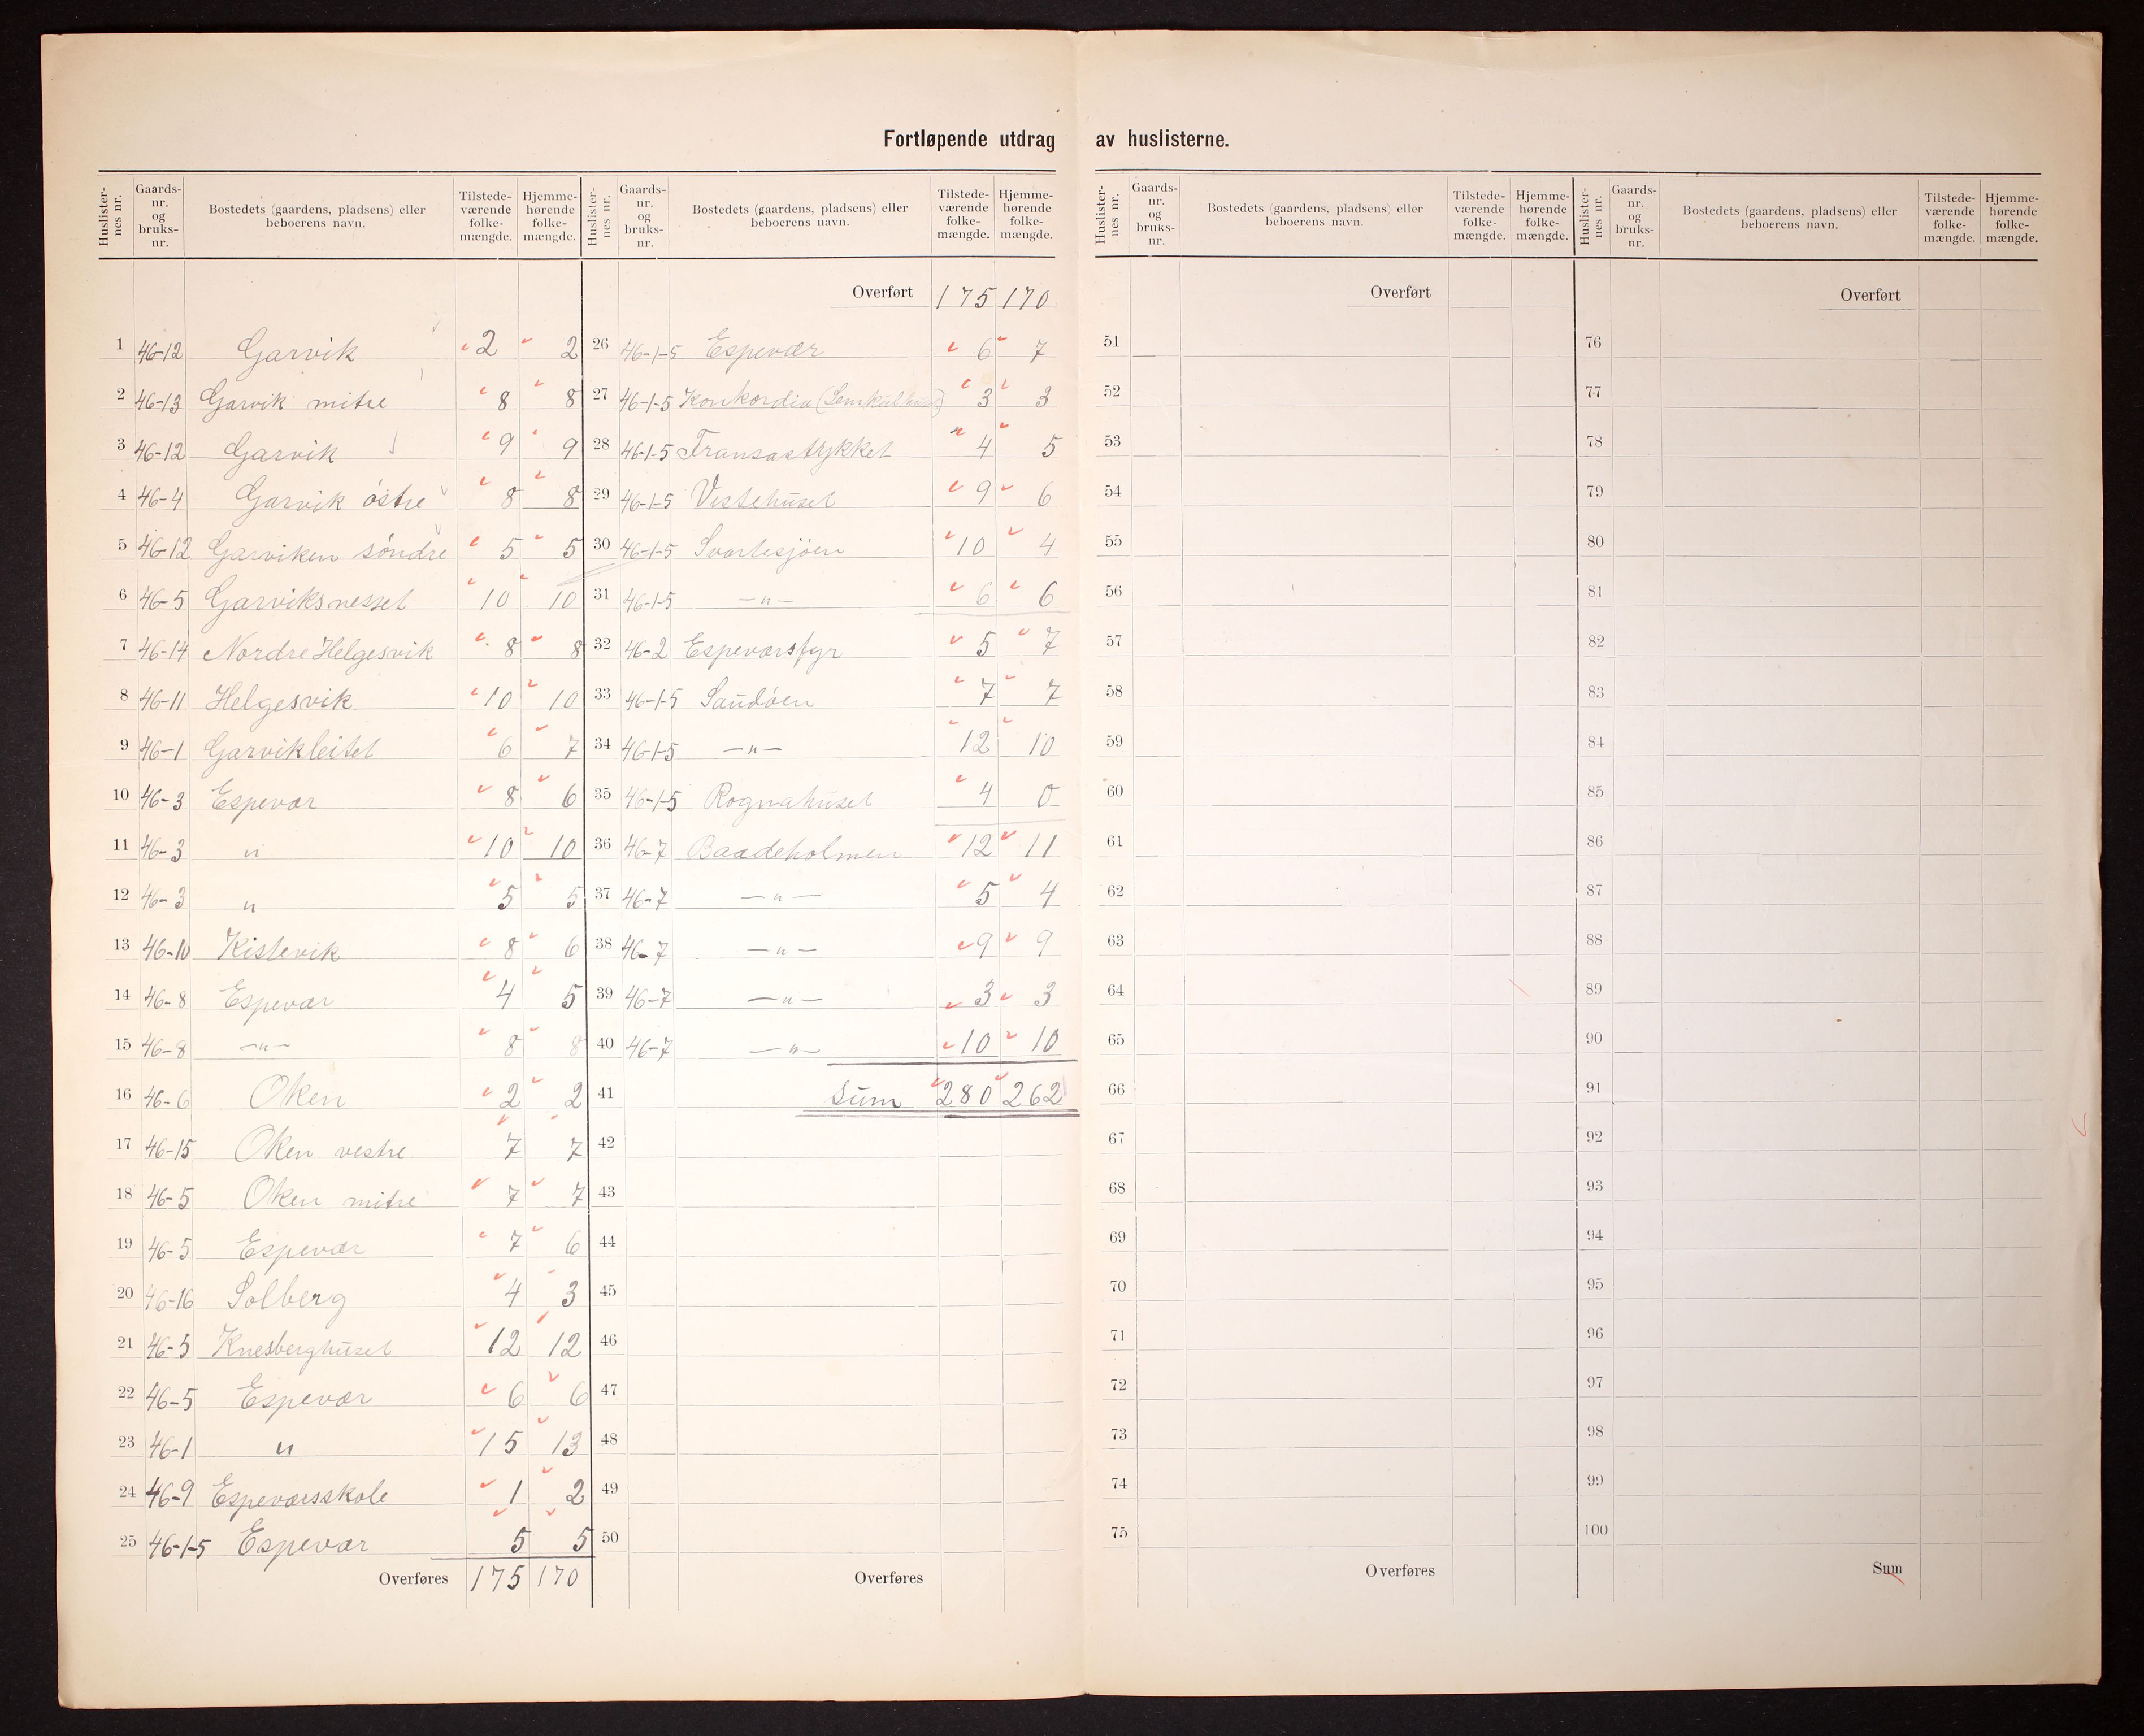 Fortløpende utdrag av huslisterne.
Huslister-nes nr. Gaards-nr. og bruks-nr. Bostedets (gaardens, pladsens) eller beboerens navn. Tilstede-værende folke-mængde. Hjemme-hørende folke-mængde.
1 46-12 Garvik 2 2
2 46-13 Garvik mitre 8 8
3 46-12 Garvik 9 9
4 46-4 Garvik östre 8 8
5 46-12 Garviken söndre 5 5
6 46-5 Garviksnesset 10 10
7 46-14 Nordre Helgesvik 8 8
8 46-11 Helgesvik 10 10
9 46-1 Garvikleitet 6 7
10 46-3 Espevær 8 6
11 46-3 " 10 10
12 46-3 " 5 5
13 46-10 Kistevik 8 6
14 46-8 Espevær 4 5
15 46-8 -"- 8 8
16 46-6 Oken 2 2
17 46-15 Oken vestre 7 7
18 46-5 Oken mitre 7 7
19 46-5 Espevær 7 6
20 46-16 Solberg 4 3
21 46-5 Knesberghuset 12 12
22 46-5 Espevær 6 6
23 46-1 " 15 13
24 46-9 Espeværsskole 1 2
25 46-1-5 Espevær 5 5
Overføres 175 170
Huslister-nes nr. Gaards-nr. og bruks-nr. Bostedets (gaardens, pladsens) eller beboerens navn. Tilstede-værende folke-mængde. Hjemme-hørende folke-mængde.
Overført 175 170
26 46-1-5 Espevær 6 7
27 46-1-5 Konkordia 3 3
28 46-1-5 Fransastykket 4 5
29 46-1-5 Vestehuset 9 6
30 46-1-5 Svartesjöen 10 4
31 46-1-5 -"- 6 6
32 46-2 Espeværsfyr 5 7
33 46-1-5 Sandöen 7 7
34 46-1-5 -"- 12 10
35 46-1-5 Rognahuset 4 0
36 46-7 Baadeholmen 12 11
37 46-7 -"- 5 4
38 46-7 -"- 9 9
39 46-7 -"- 3 3
40 46-7 -"- 10 10
41 Sum 280 262
42
43
44
45
46
47
48
49
50
Overføres
Huslister-nes nr. Gaards-nr. og bruks-nr. Bostedets (gaardens, pladsens) eller beboerens navn. Tilstede-værende folke-mængde. Hjemme-hørende folke-mængde.
Overført
51
52
53
54
55
56
57
58
59
60
61
62
63
64
65
66
67
68
69
70
71
72
73
74
75
Overføres
Huslister-nes nr. Gaards-nr. og bruks-nr. Bostedets (gaardens, pladsens) eller beboerens navn. Tilstede-værende folke-mængde. Hjemme-hørende folke-mængde.
Overført
76
77
78
79
80
81
82
83
84
85
86
87
88
89
90
91
92
93
94
95
96
97
98
99
100
Sum